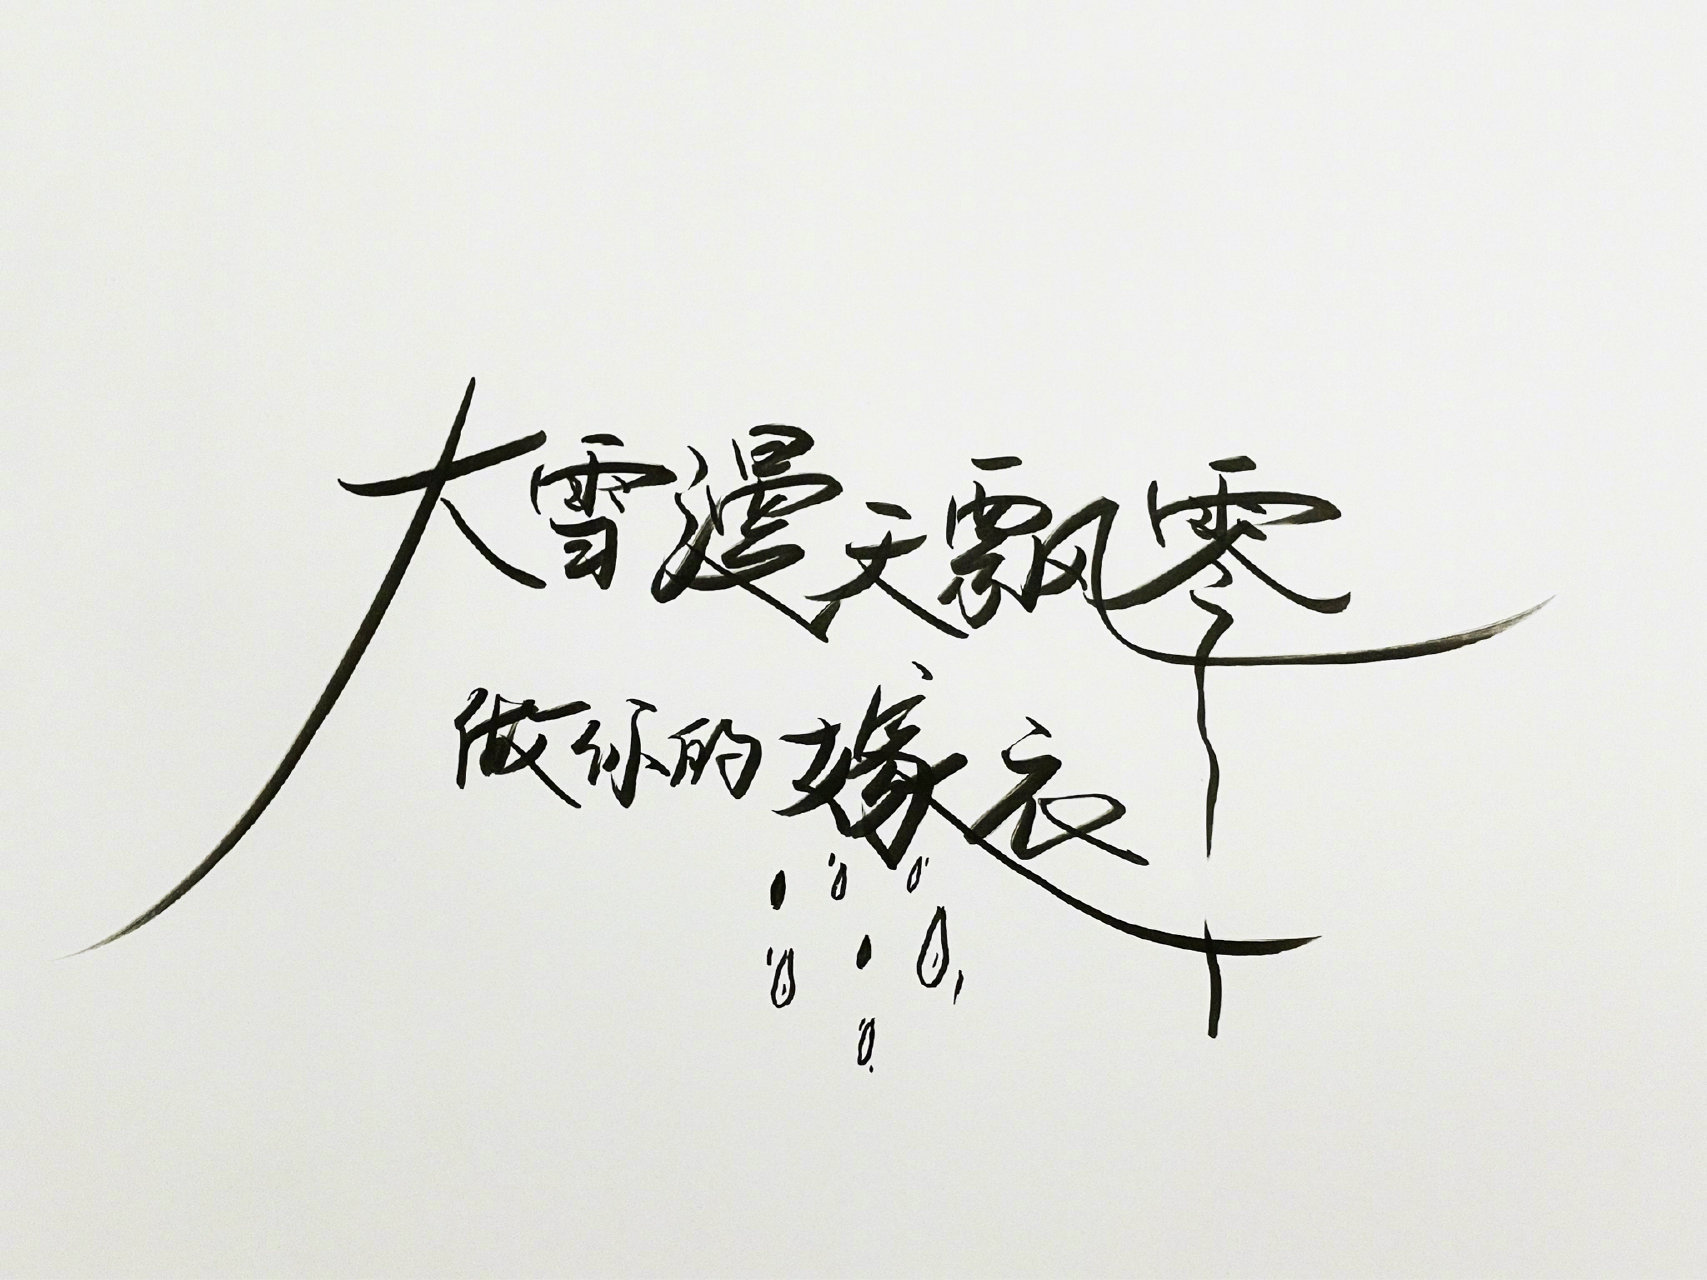 大雪漫天飘零
做你的嫁衣